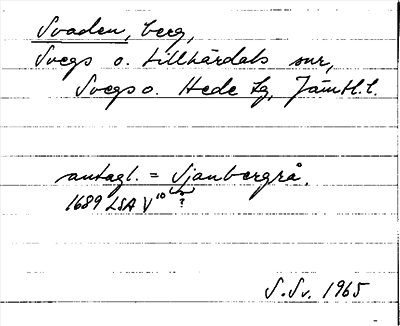 Svaden, berg,
Svegs o. Lillhärdals snr,
Svegs o. Hede tg, Jämtl. l.
antagl. = Sjanbergrå.
1689 LSA V¹⁰ ?
S. Sv. 1965